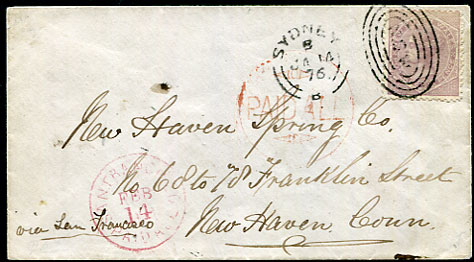 SYDNEY
B
JA 14
76
B
PAID ALL
New Haven Spring Co.
No 68 to 78 Franklin Street
FEB
14
via San Francisco
New Haven, Conn.